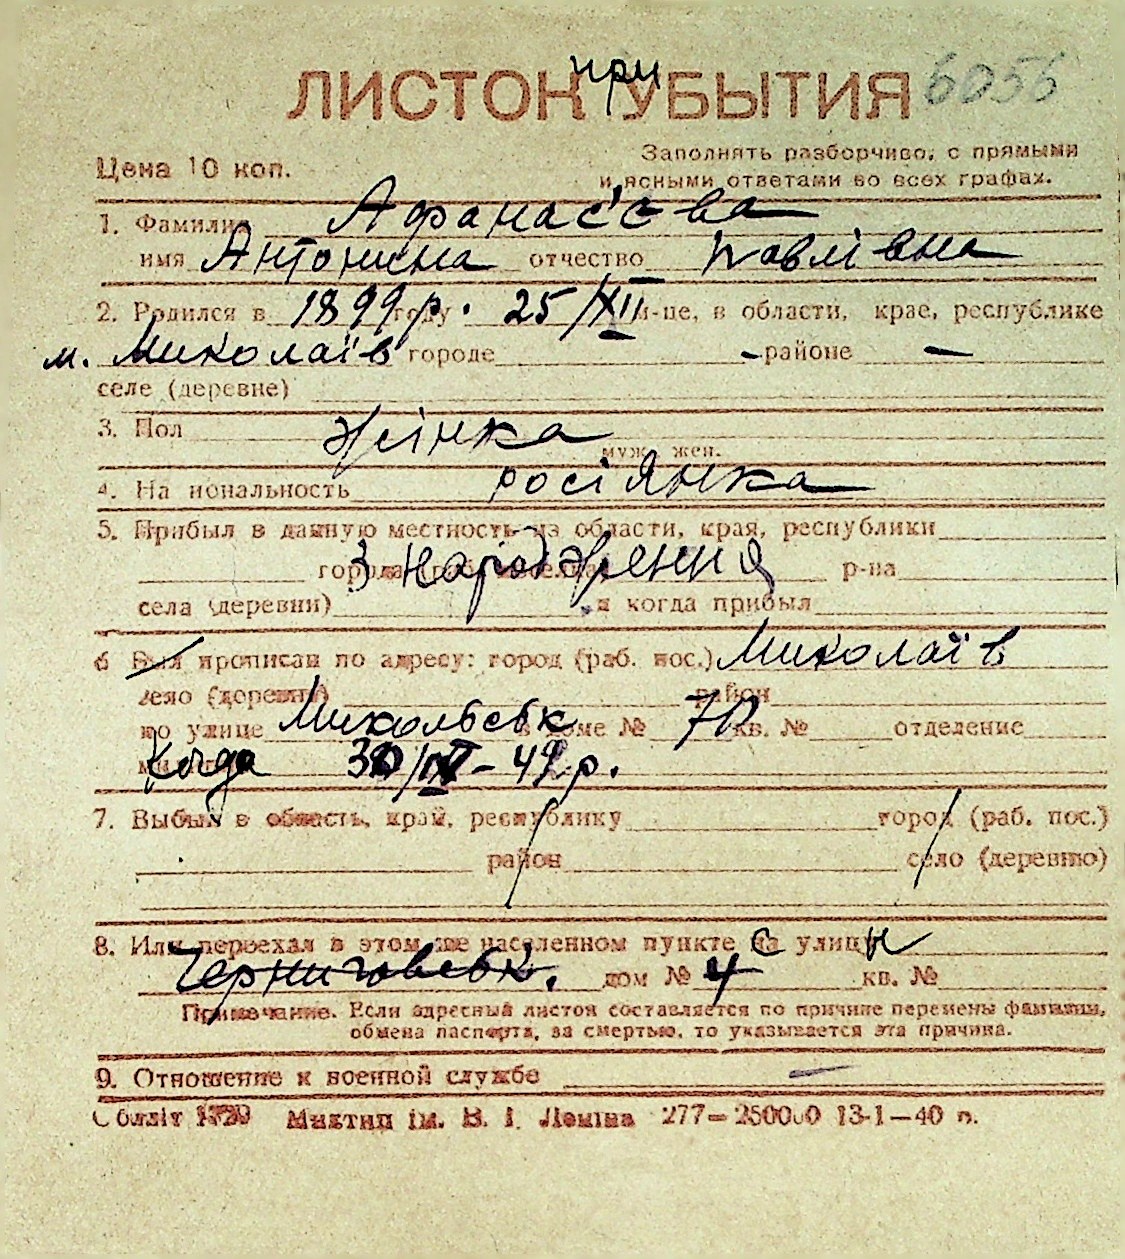 ЛИСТОК при УБЫТИЯ 6056
Цена 10 коп.
Заполнять разборчиво, с прямыми
и ясными ответами во всех графах.
1. Фамилия Афанас'єва
имя Антонина отчество Павлівна
2. Родился в 1899 р. году 25/XII м-це, в области, крае, республике
м. Миколаїв городе - районе -
селе (деревне)
3. Пол жінка
муж. жен.
4. Национальность росіянка
5. Прибыл в данную местность из области, края, республики
города (раб. поселка) З народження р-на
села (деревни) и когда прибыл
6 Был прописан по адресу: город (раб. пос.) Миколаїв
село (деревню) район
по улице Микольськ в доме № 70 кв. № отделение
Когда 42 р.
7. Выбыл в область, край, республику город (раб. пос.)
район село (деревню)
8. Или переехал в этом же населенном пункте с улицы
Черниговськ. дом № 4 кв. №
Примечание. Если адресный листок составляется по причине перемены фамилии,
обмена паспорта, за смертью, то указывается эта причина.
9. Отношение к военной службе -
Обліт Миктип ім. В. І. Леніна 277—250000 13-1—40 п.